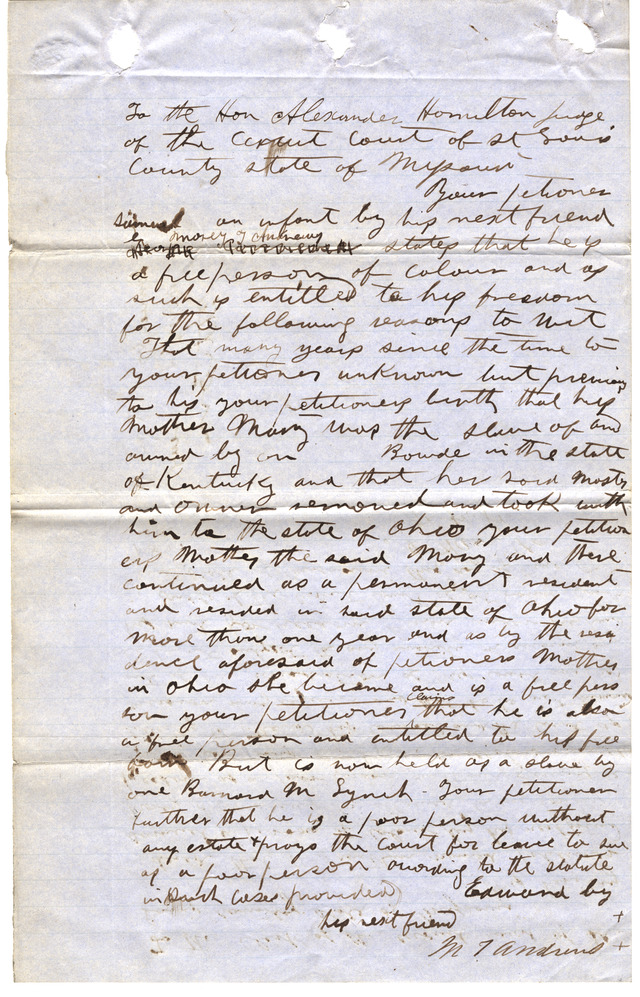 To the Hon Alexander Hamilton judge
of the Circuit Court of St Louis
County state of Missouri
Your petioner
Samuel an infant by his next friend
Morey T Andrews
states that he is
a free person of colour and as
such is entitled to his freedom
for the following reasons to wit
That many years since the time to
your petioner unknown but previous
to his your petitioners birth that his
Mother Mary was the slave of and
owned by on Bowde in the state
of Kentucky and that her said Master
and owner removed and took with
him to the state of Ohio your petition
ers Mother the said Mary and there
continued as a permanent resident
and resided in said state of Ohio for
more than one year and as by the resi
dence aforesaid of petioners Mother
in Ohio she became and is a free pers
claims
son your petitioner that he is also
a free person and entitled to his free
dom But is now held as a slave by
one Barnard M Lynch - Your petitioner
further that he is a poor person without
any estate & prays the court for leave to sue
as a poor person according to the statute
in such cases provided Edward by
his next friend
M T Andrews